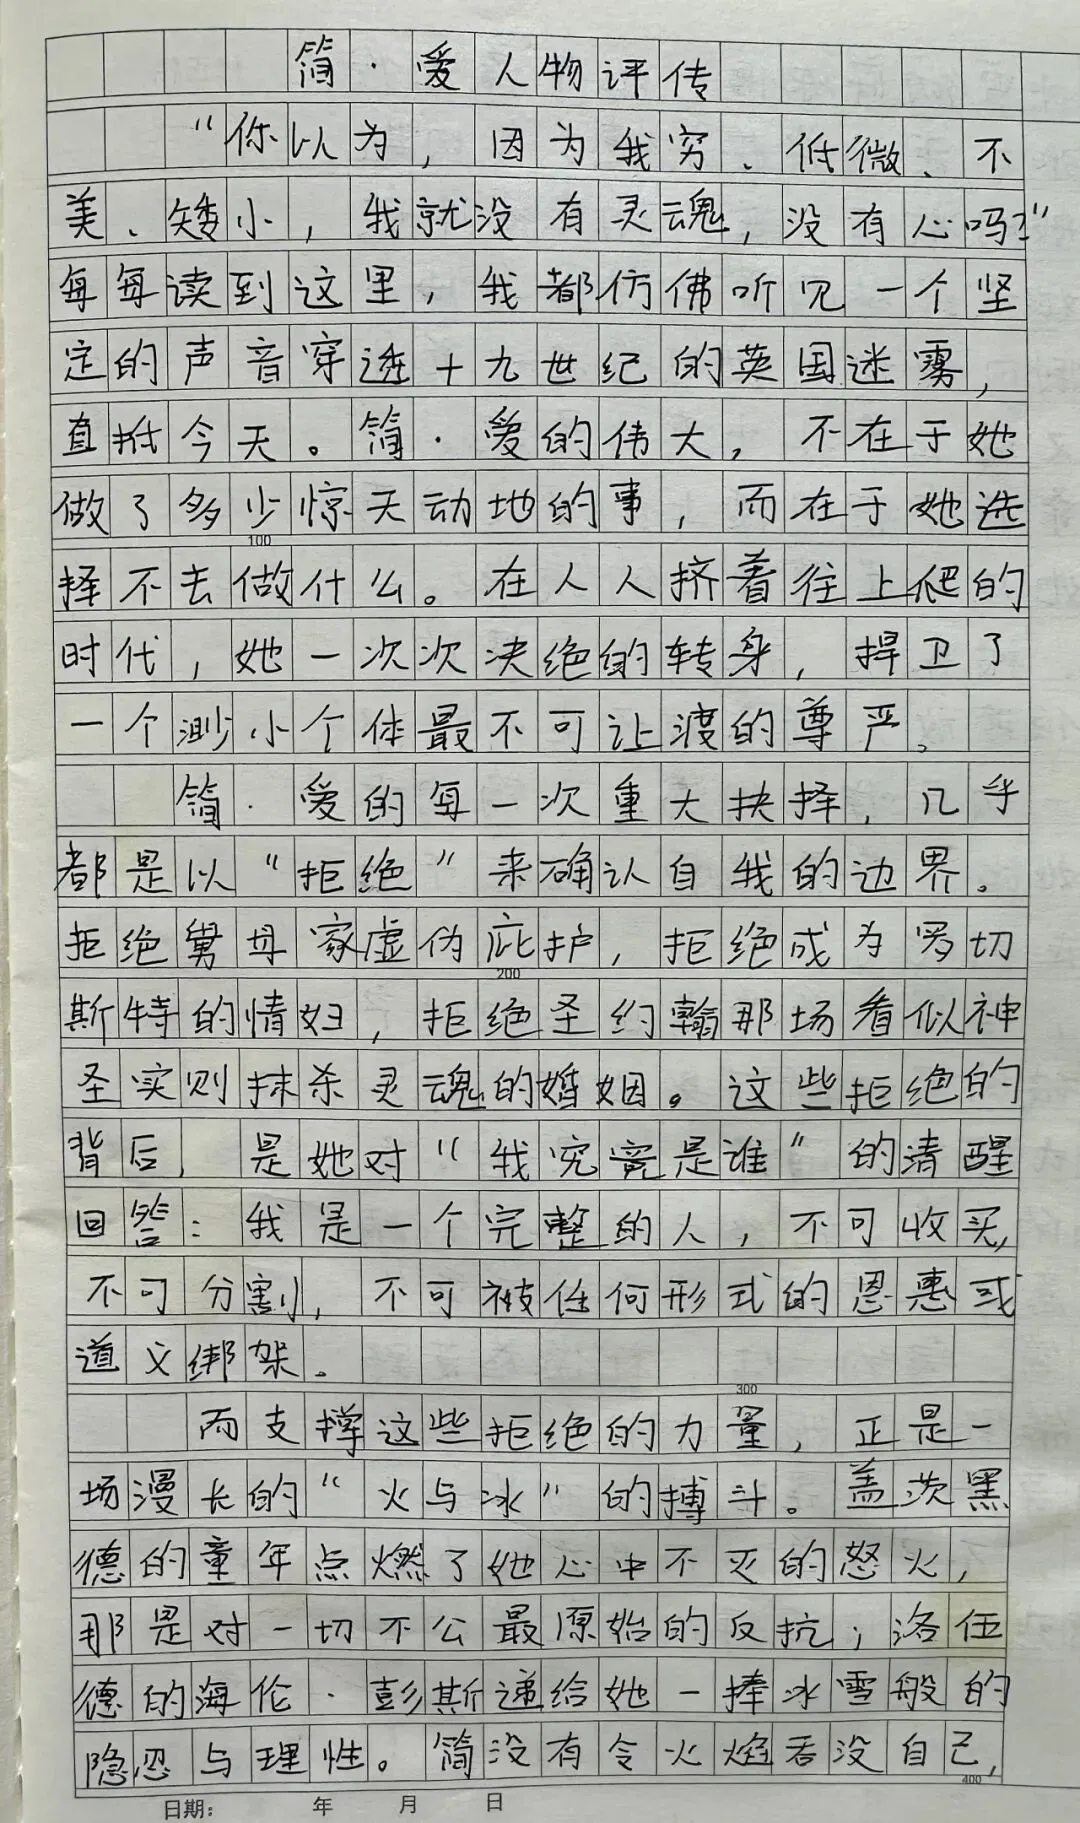 简·爱人物评传
“你以为,因为我穷、低微、不
美、矮小,我就没有灵魂,没有心吗?”
每每读到这里,我都仿佛听见一个坚
定的声音穿透十九世纪的英国迷雾,
直抵今天。简·爱的伟大,不在于她
做了多少惊天动地的事,而在于她选
100
择不去做什么。在人人挤着往上爬的
时代,她一次次决绝的转身,捍卫了
一个渺小个体最不可让渡的尊严。
简·爱的每一次重大抉择,几乎
都是以“拒绝”来确认自我的边界。
拒绝舅母家虚伪庇护,拒绝成为罗切
200
斯特的情妇,拒绝圣约翰那场看似神
圣实则抹杀灵魂的婚姻。这些拒绝的
背后,是她对“我究竟是谁”的清醒
回答:我是一个完整的人,不可收买,
不可分割,不可被任何形式的恩惠或
道义绑架。
300
而支撑这些拒绝的力量,正是一
场漫长的“火与冰”的搏斗。盖茨黑
德的童年点燃了她心中不灭的怒火,
那是对一切不公最原始的反抗;洛伍
德的海伦·彭斯递给她一捧冰雪般的
隐忍与理性。简没有令火焰吞没自己,
400
日期: 年 月 日